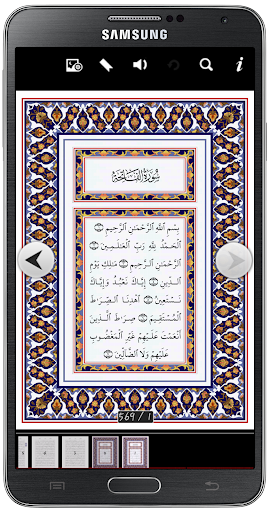 SAMSUNG
سُورَةُ الفَاتِحَةِ
بِسْمِ اللَّهِ الرَّحْمَٰنِ الرَّحِيمِ ۝
الْحَمْدُ لِلَّهِ رَبِّ الْعَالَمِينَ ۝
الرَّحْمَٰنِ الرَّحِيمِ ۝ مَالِكِ يَوْمِ
الدِّينِ ۝ إِيَّاكَ نَعْبُدُ وَإِيَّاكَ
نَسْتَعِينُ ۝ اهْدِنَا الصِّرَاطَ
الْمُسْتَقِيمَ ۝ صِرَاطَ الَّذِينَ
أَنْعَمْتَ عَلَيْهِمْ غَيْرِ الْمَغْضُوبِ
عَلَيْهِمْ وَلَا الضَّالِّينَ ۝
569 / 1